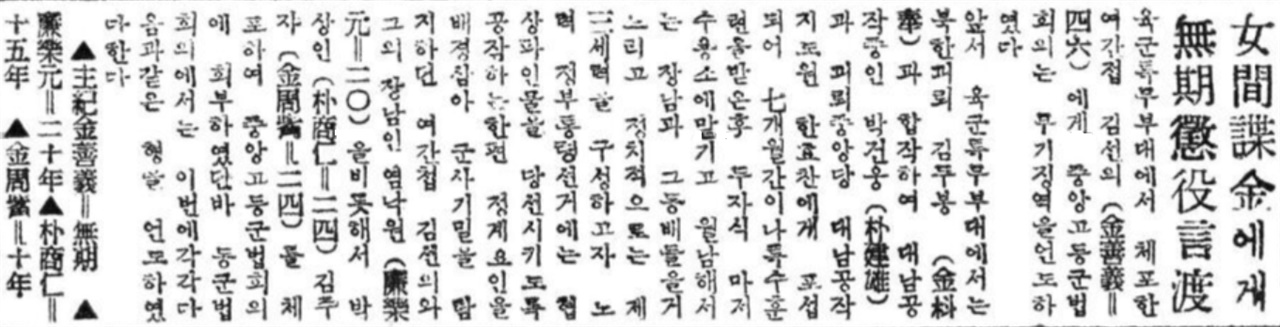 女間諜金에게
無期懲役言渡
육군특무부대에서 체포한
여간첩 김선의(金善義=
四六)에게 중앙고등군법
회의는 무기징역을언도하
였다
앞서 육군특무부대에서는
북한괴뢰 김두봉 (金枓
奉)과 합작하여 대남공
작중인 박건웅(朴建雄)
과 괴뢰중앙당 대남공작
지도원 한효찬에게 포섭
되어 七개월간이나특수훈
련을받은후 두자식 마저
수용소에맡기고 월남해서
는 장남과 그동배들을거
느리고 정치적으로는 제
三세력을 구성하고자 노
력 정부통령선거에는 협
상파인물을 당선시키도록
공작하는한편 정계요인을
배경삼아 군사기밀을 탐
지하던 여간첩 김선의와
그의 장남인 염낙원(廉樂
元=二○)을비롯해서 박
상인(朴商仁=二四) 김주
자(金周 =二四)를 체
포하여 중앙고등군법회의
에 회부하였던바 동군법
회의에서는 이번에각각다
음과같은 형을 언도하였
다한다
▲主犯金善義=無期 ▲
廉樂元=二十年▲朴商仁=
十五年 ▲金周 =十年